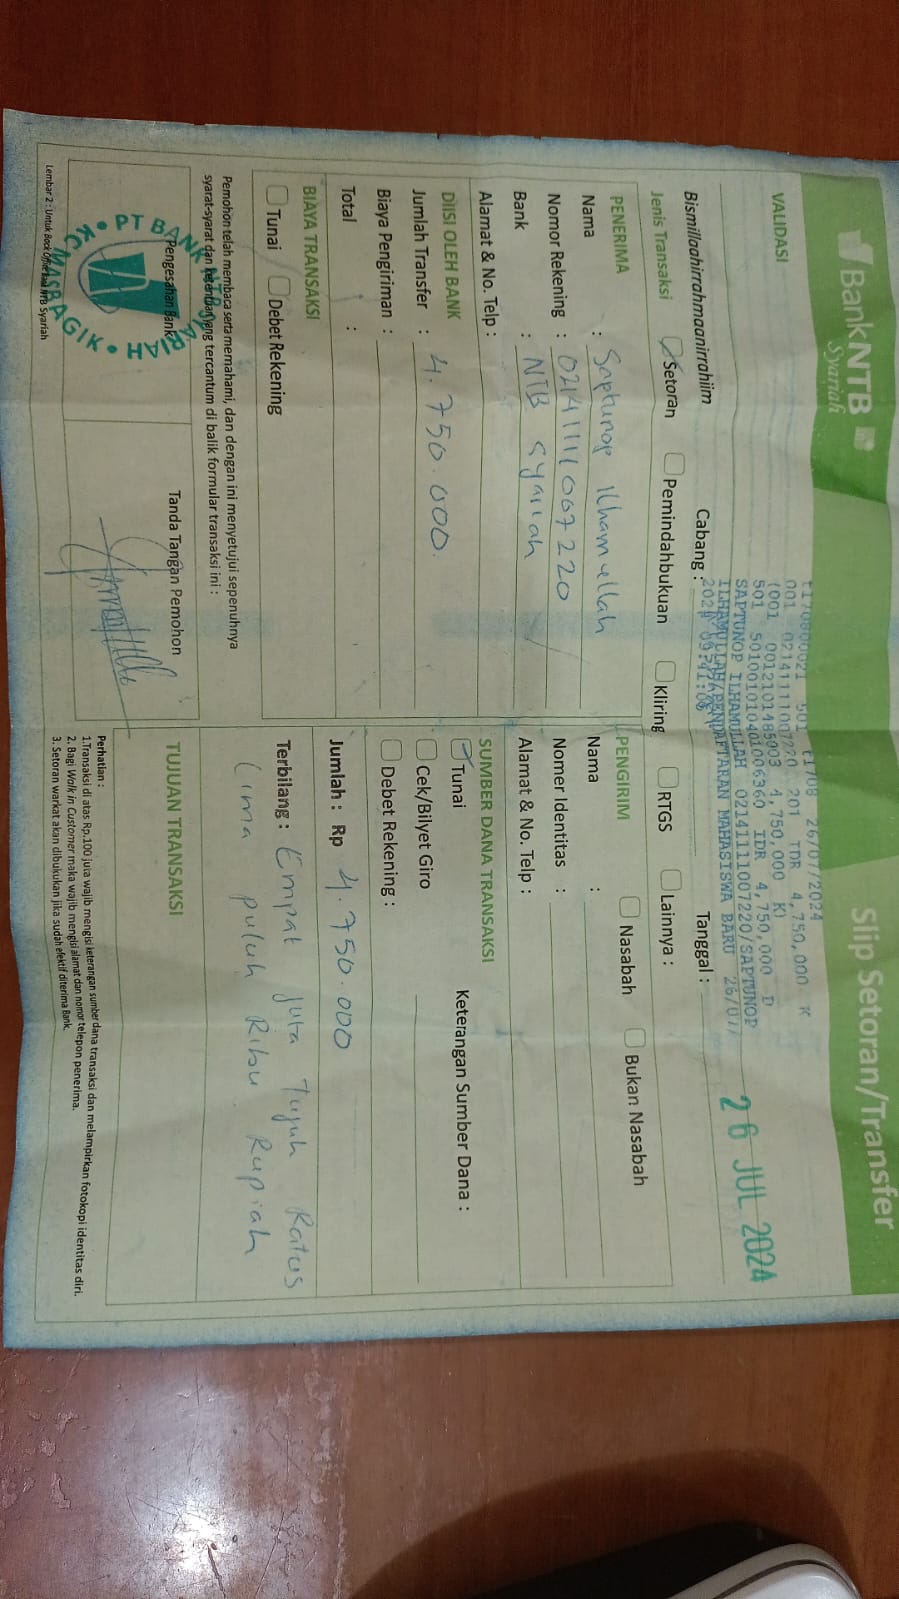 BankNTB
Syariah
Slip Setoran/Transfer
VALIDASI
t1708000021 501 t1708 26/07/2024
001 0214111100722​0 201 IDR 4,750,000 K
(001 0012101485903 4,750,000 K)
501 501001010401006360 IDR 4,750,000 D
SAPTUNOP ILHAMULLAH 02141111007220/SAPTUNOP
ILHAMULLAH/PENDAFTARAN MAHASISWA BARU 26/07/
2024 09:41:06
26 JUL 2024
Bismillaahirrahmaanirrahiim
Cabang :
Tanggal :
Jenis Transaksi
Setoran
Pemindahbukuan
Kliring
RTGS
Lainnya :
PENERIMA
Nama : Saptunop Ilhamullah
Nomor Rekening : 02141111007220
Bank : NTB Syariah
Alamat & No. Telp :
PENGIRIM
Nasabah
Bukan Nasabah
Nama :
Nomer Identitas :
Alamat & No. Telp :
DIISI OLEH BANK
Jumlah Transfer : 4.750.000.
Biaya Pengiriman :
Total :
SUMBER DANA TRANSAKSI
Tunai
Keterangan Sumber Dana :
Cek/Bilyet Giro
Debet Rekening :
BIAYA TRANSAKSI
Tunai
Debet Rekening
Jumlah : Rp 4.750.000
Terbilang : Empat Juta Tujuh Ratus
Lima puluh Ribu Rupiah
Pemohon telah membaca serta memahami, dan dengan ini menyetujui sepenuhnya
syarat-syarat dan ketentuan yang tercantum di balik formular transaksi ini :
Pengesahan Bank
PT BANK NTB SYARIAH
KC MASBAGIK
Tanda Tangan Pemohon
TUJUAN TRANSAKSI
Perhatian :
1.Transaksi di atas Rp.100 juta wajib mengisi keterangan sumber dana transaksi dan melampirkan fotokopi identitas diri.
2. Bagi Walk in Customer maka wajib mengisi alamat dan nomor telepon penerima.
3. Setoran warkat akan dibukukan jika sudah efektif diterima Bank.
Lembar 2 : Untuk Back Office Bank NTB Syariah